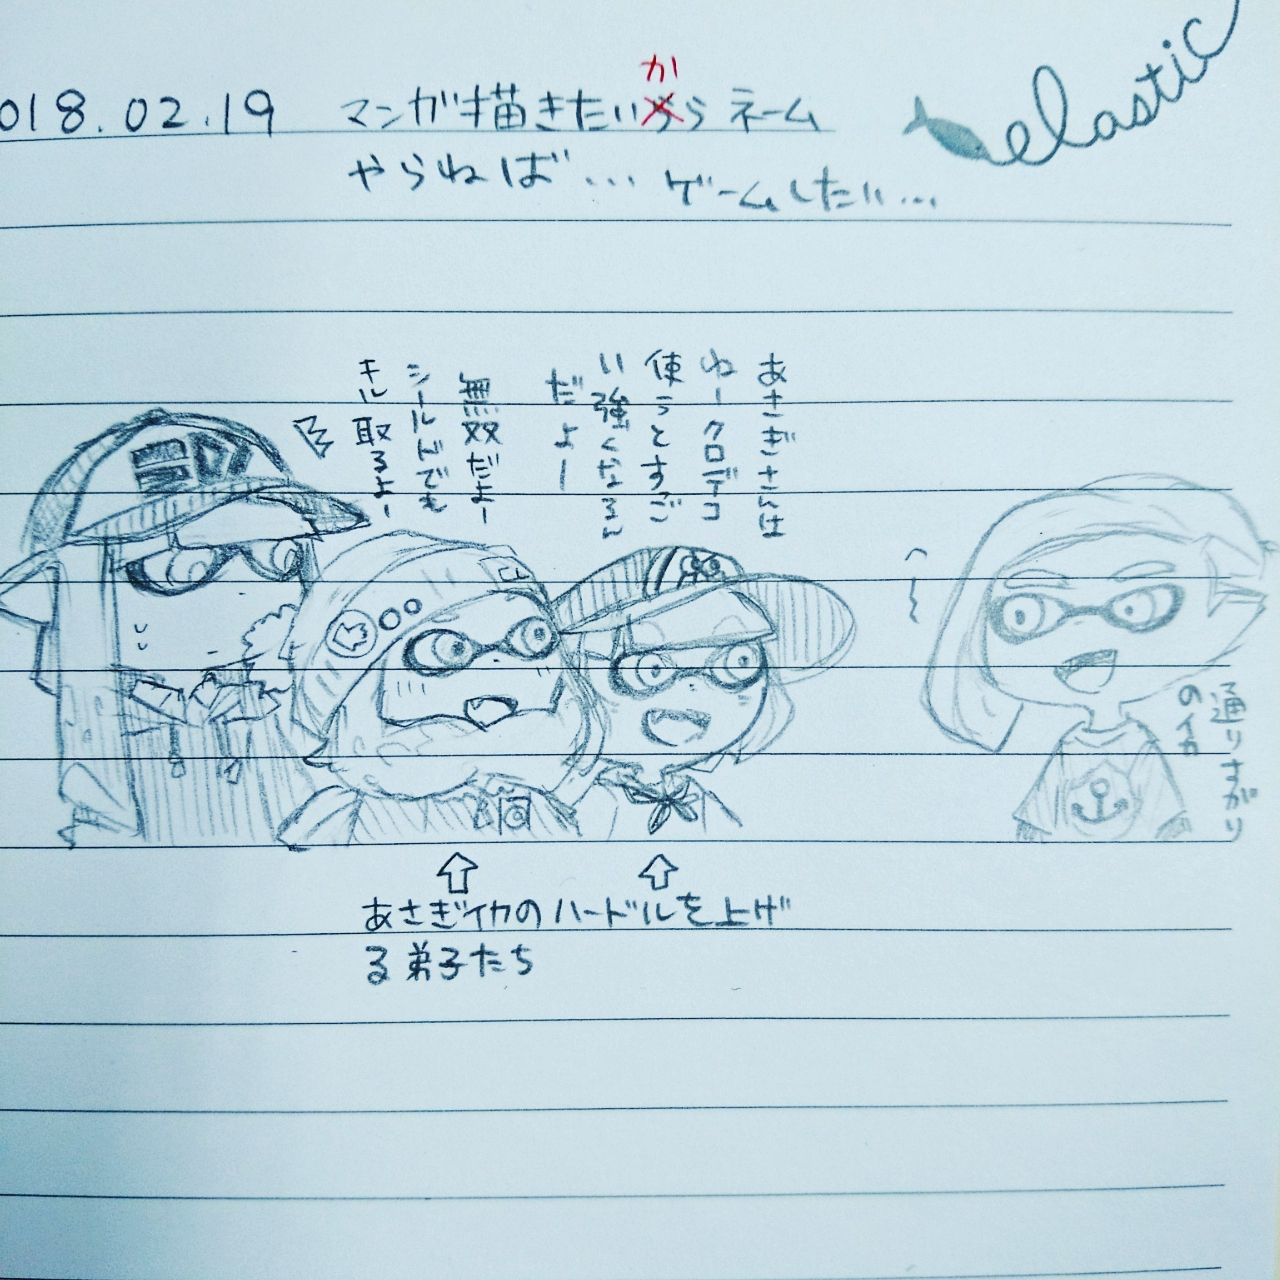 018.02.19 マンガ描きたいから ネーム
やらねば… ゲームしたい…
elastic
あさぎさんは
ねークロデコ
使うとすご
い強くなるん
だよー
無双だよー
シールドでも
キル取るよー
へー
通りすがり
のイカ
あさぎイカのハードルを上げ
る弟子たち